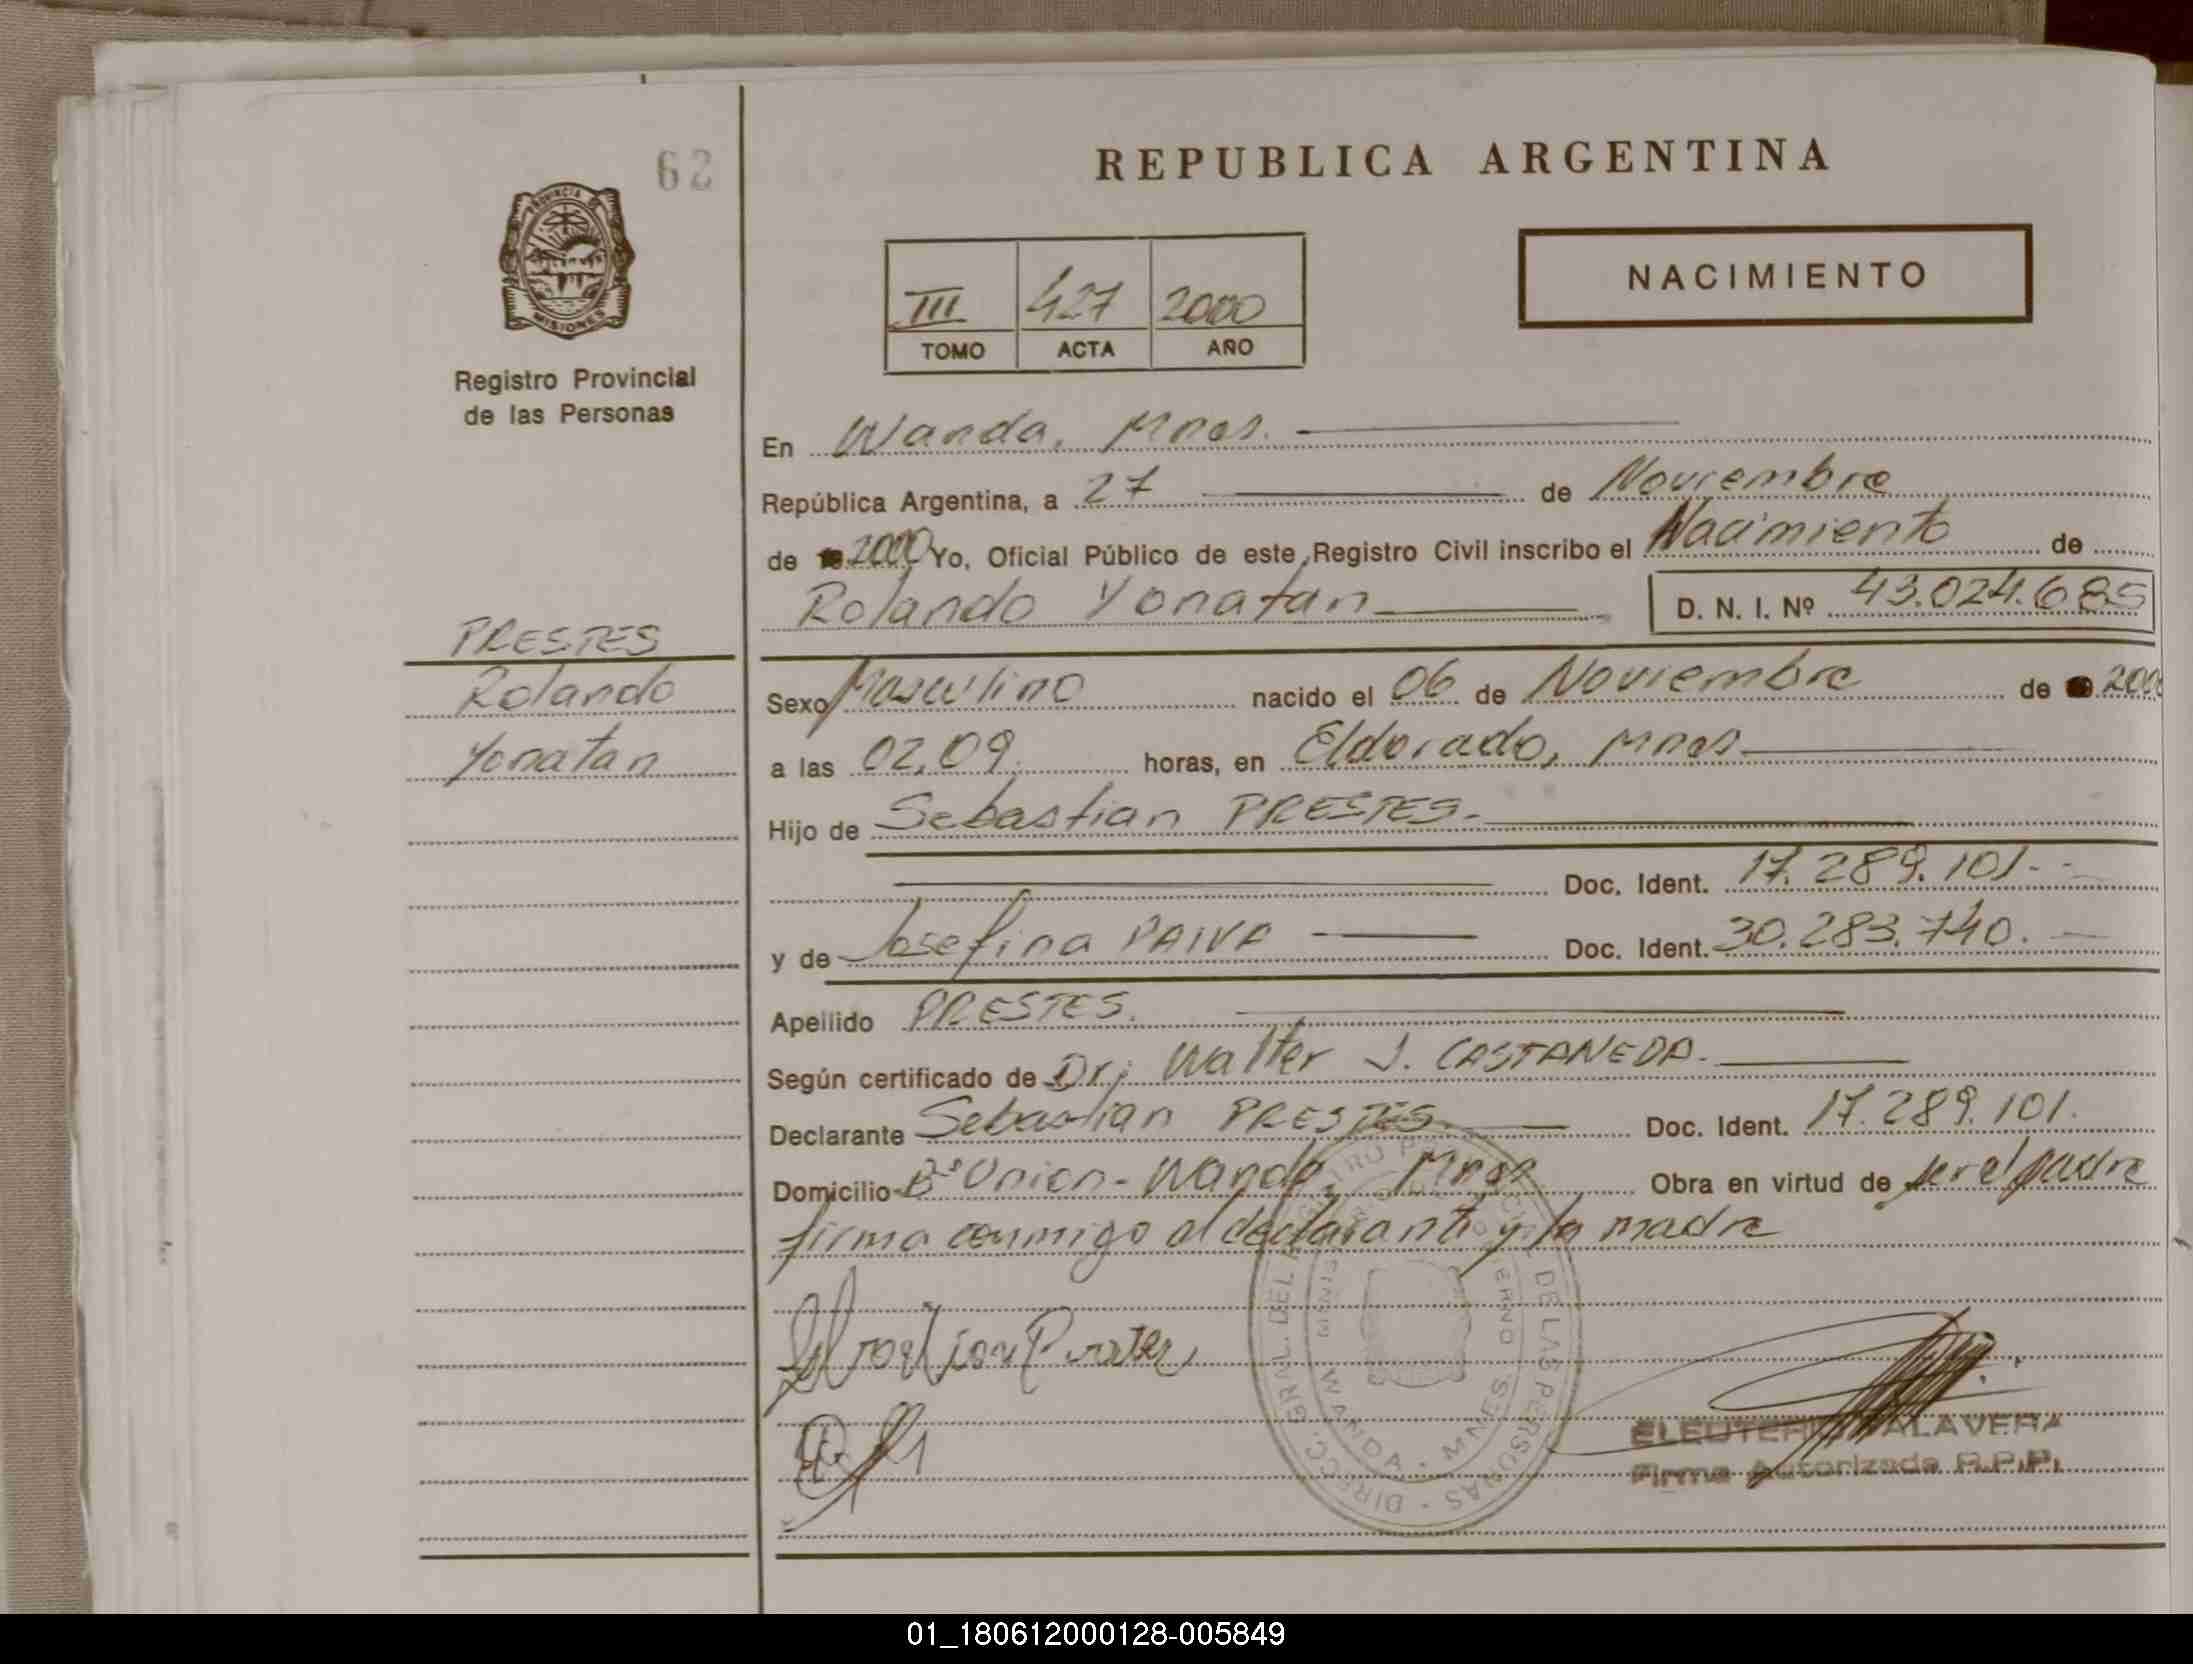 62
PROVINCIA DE
MISIONES
Registro Provincial
de las Personas
PRESTES
Rolando
Yonatan
REPUBLICA ARGENTINA
NACIMIENTO
III 427 2000
TOMO ACTA AÑO
En Wanda, Mnes.
República Argentina, a 27 de Noviembre
de 2000 Yo, Oficial Público de este Registro Civil inscribo el Nacimiento de
Rolando Yonatan D. N. I. Nº 43.024.685
Sexo Masculino nacido el 06 de Noviembre de 2000
a las 02,09. horas, en Eldorado, Mnes
Hijo de Sebastian PRESTES.
Doc. Ident. 17.289.101.
y de Josefina PAIVA Doc. Ident. 30.283.740.
Apellido PRESTES.
Según certificado de Dr; Walter J. CASTANEDA.
Declarante Sebastian PRESTES. Doc. Ident. 17.289.101.
Domicilio Bº Union - Wanda, Mnes Obra en virtud de ser el padre
firma conmigo el declarante y la madre
DIRECC. GRAL. DEL REGISTRO PROVINCIAL DE LAS PERSONAS
WANDA - MNES.
ELEUTERIO TALAVERA
Firma Autorizada R.P.P.
01_180612000128-005849